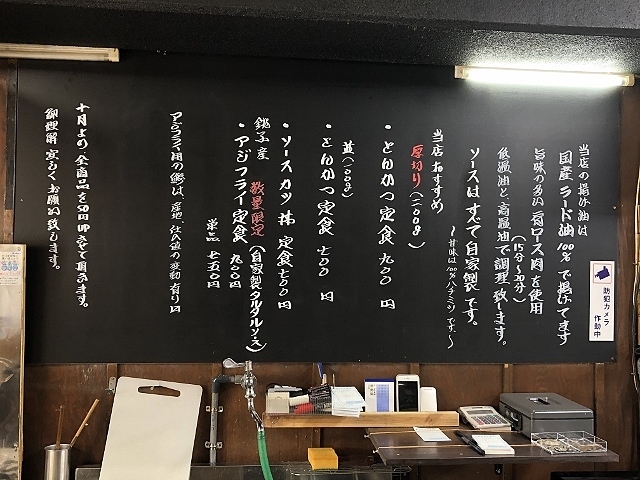 当店の揚げ油は
国産ラード油100%で揚げてます
旨味の多い肩ロース肉を使用
(15分〜20分)
低温油と、高温油で調理致します。
ソースはすべて自家製です。
〜甘味は100%ハチミツです。〜
当店おすすめ
厚切り(二〇〇g)
・とんかつ定食 九〇〇円
・とんかつ定食 七〇〇円
・ソースカツ丼 定食 七〇〇円
銚子産 数量限定(自家製タルタルソース)
・アジフライ定食 九〇〇円
単品 七五〇円
アジフライ用の鯵は、産地、仕入値の変動有り〼
十月より全商品を50円UPさせて頂きます。
御理解宜しくお願い致します。
防犯カメラ
作動中